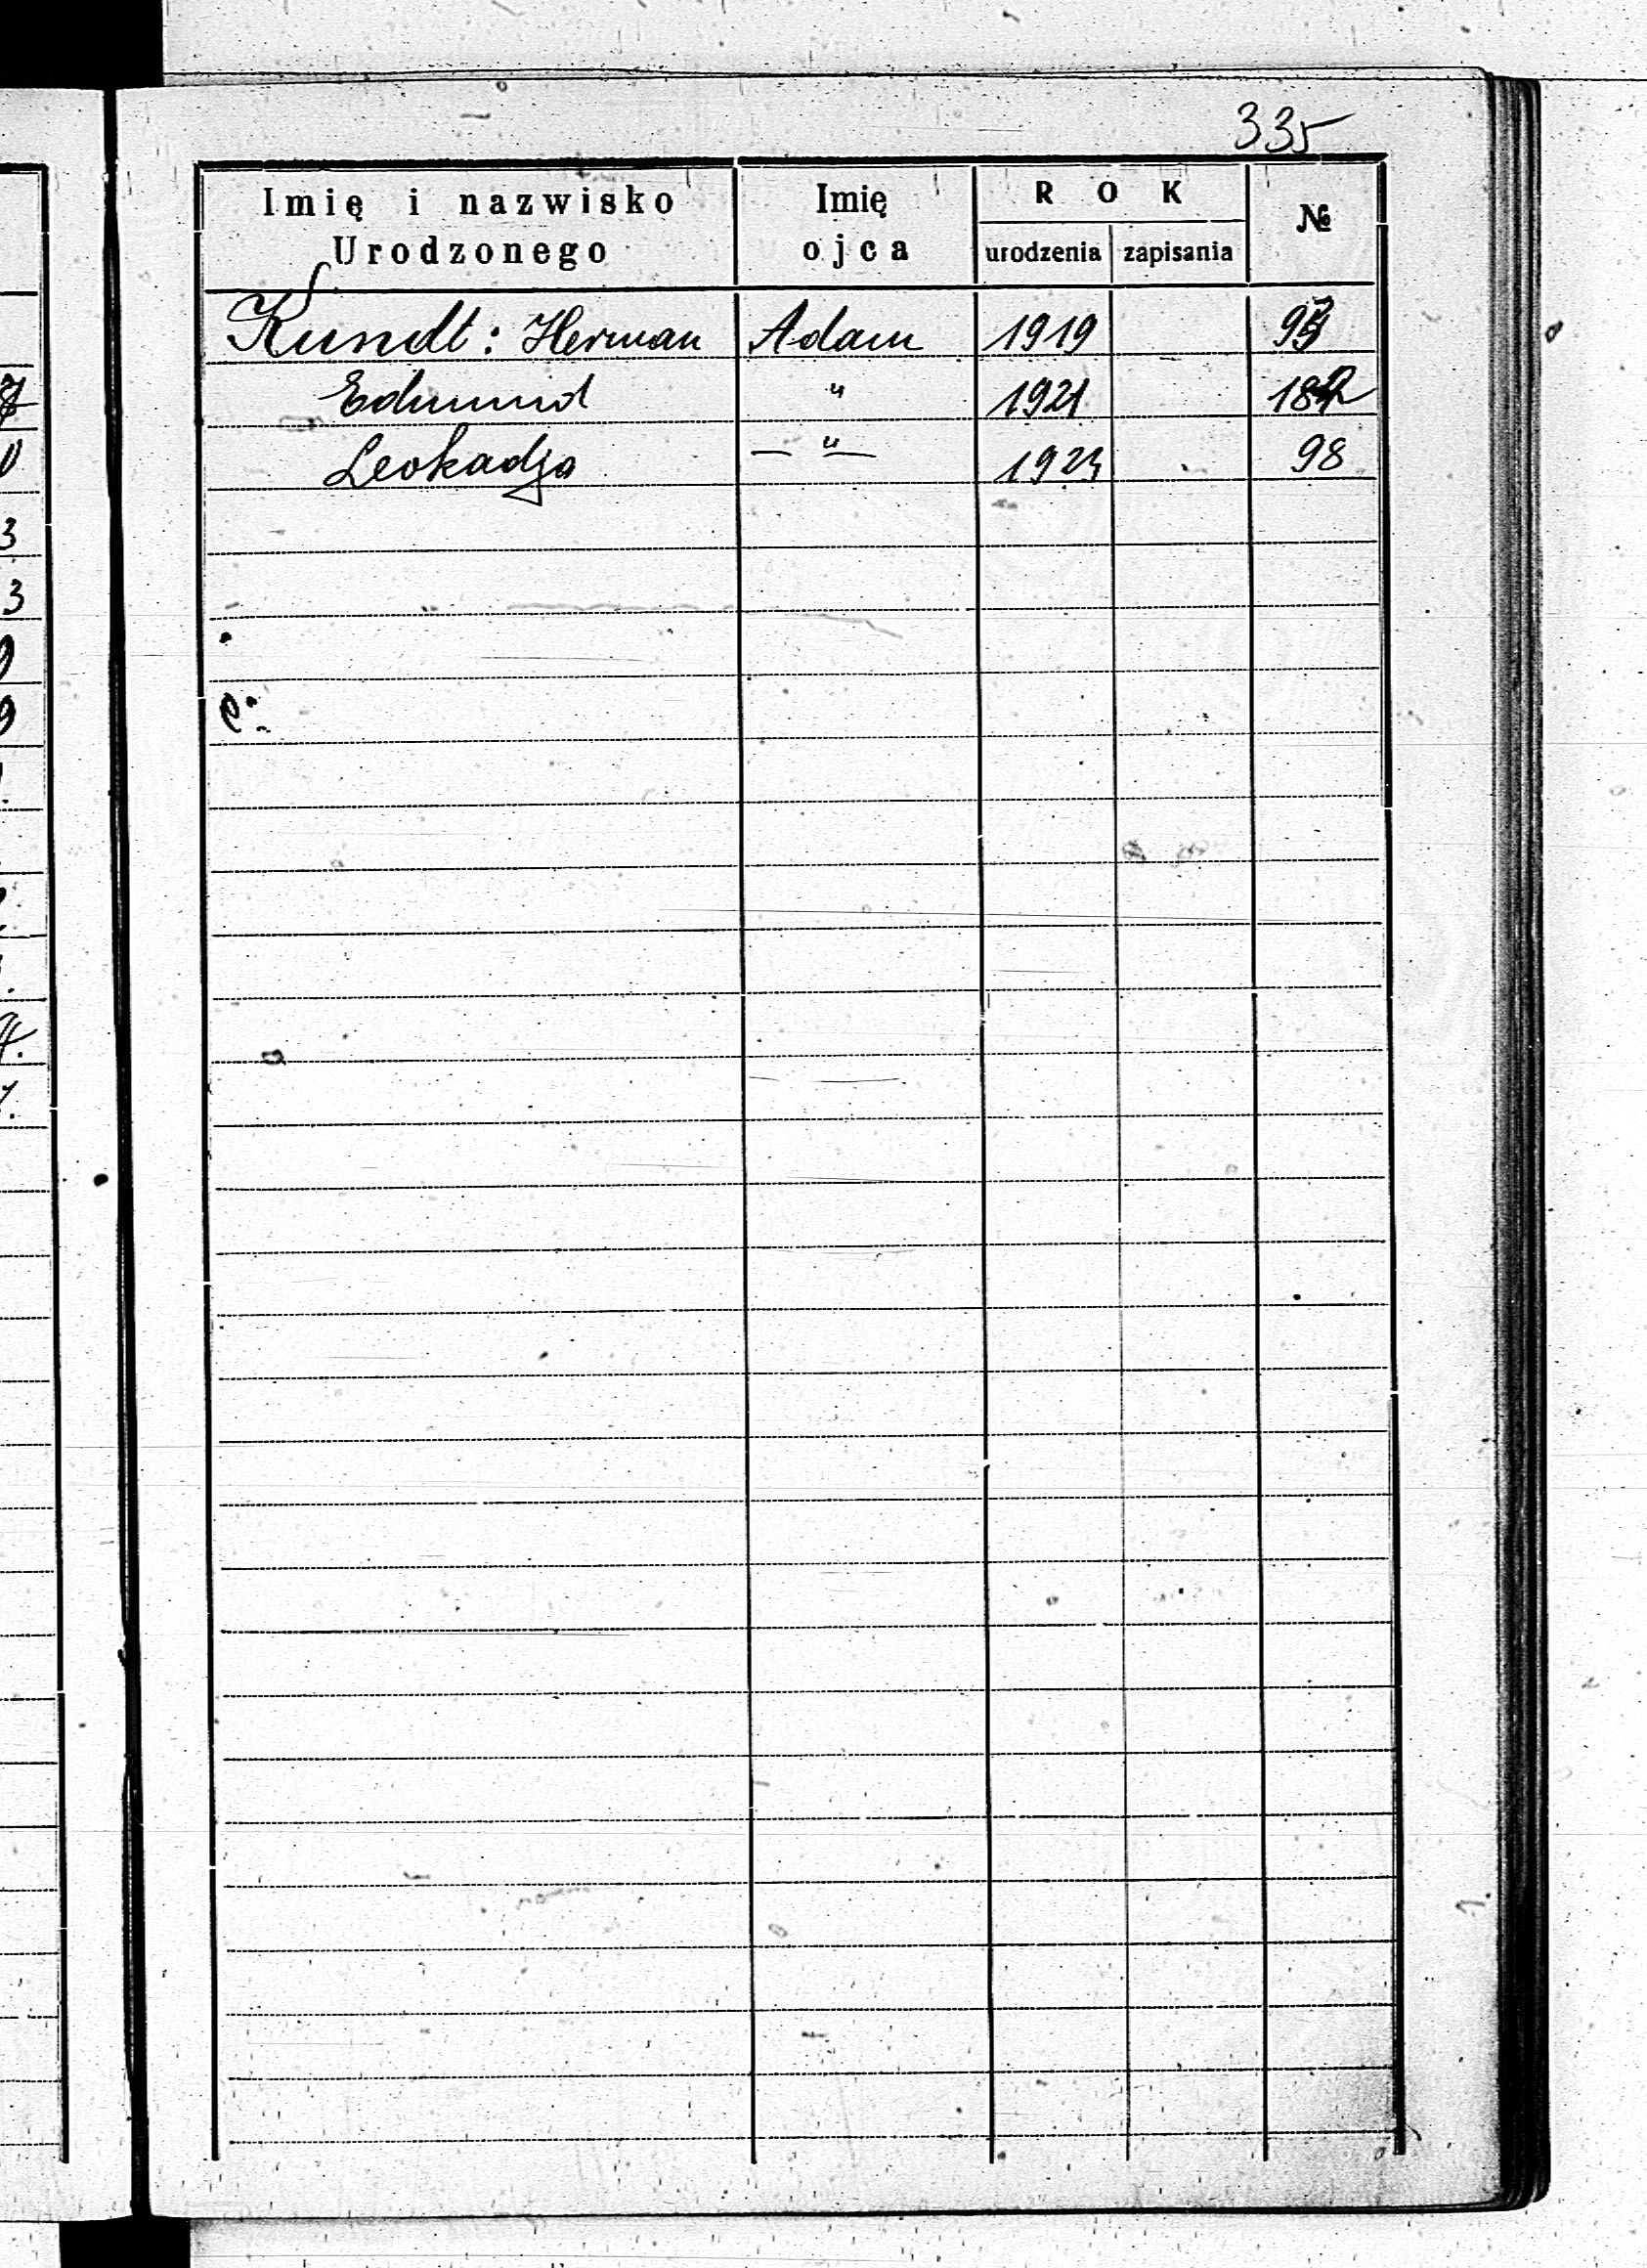 335
Imię i nazwisko Urodzonego Imię ojca ROK urodzenia zapisania №
Kundt: Herman Adam 1919
Edmund " 1921
Leokadja — " — 1923 98
3
3